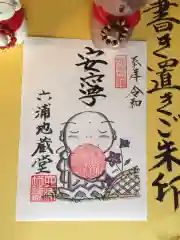 書き置きご朱印
令和
安寧
六浦地蔵堂